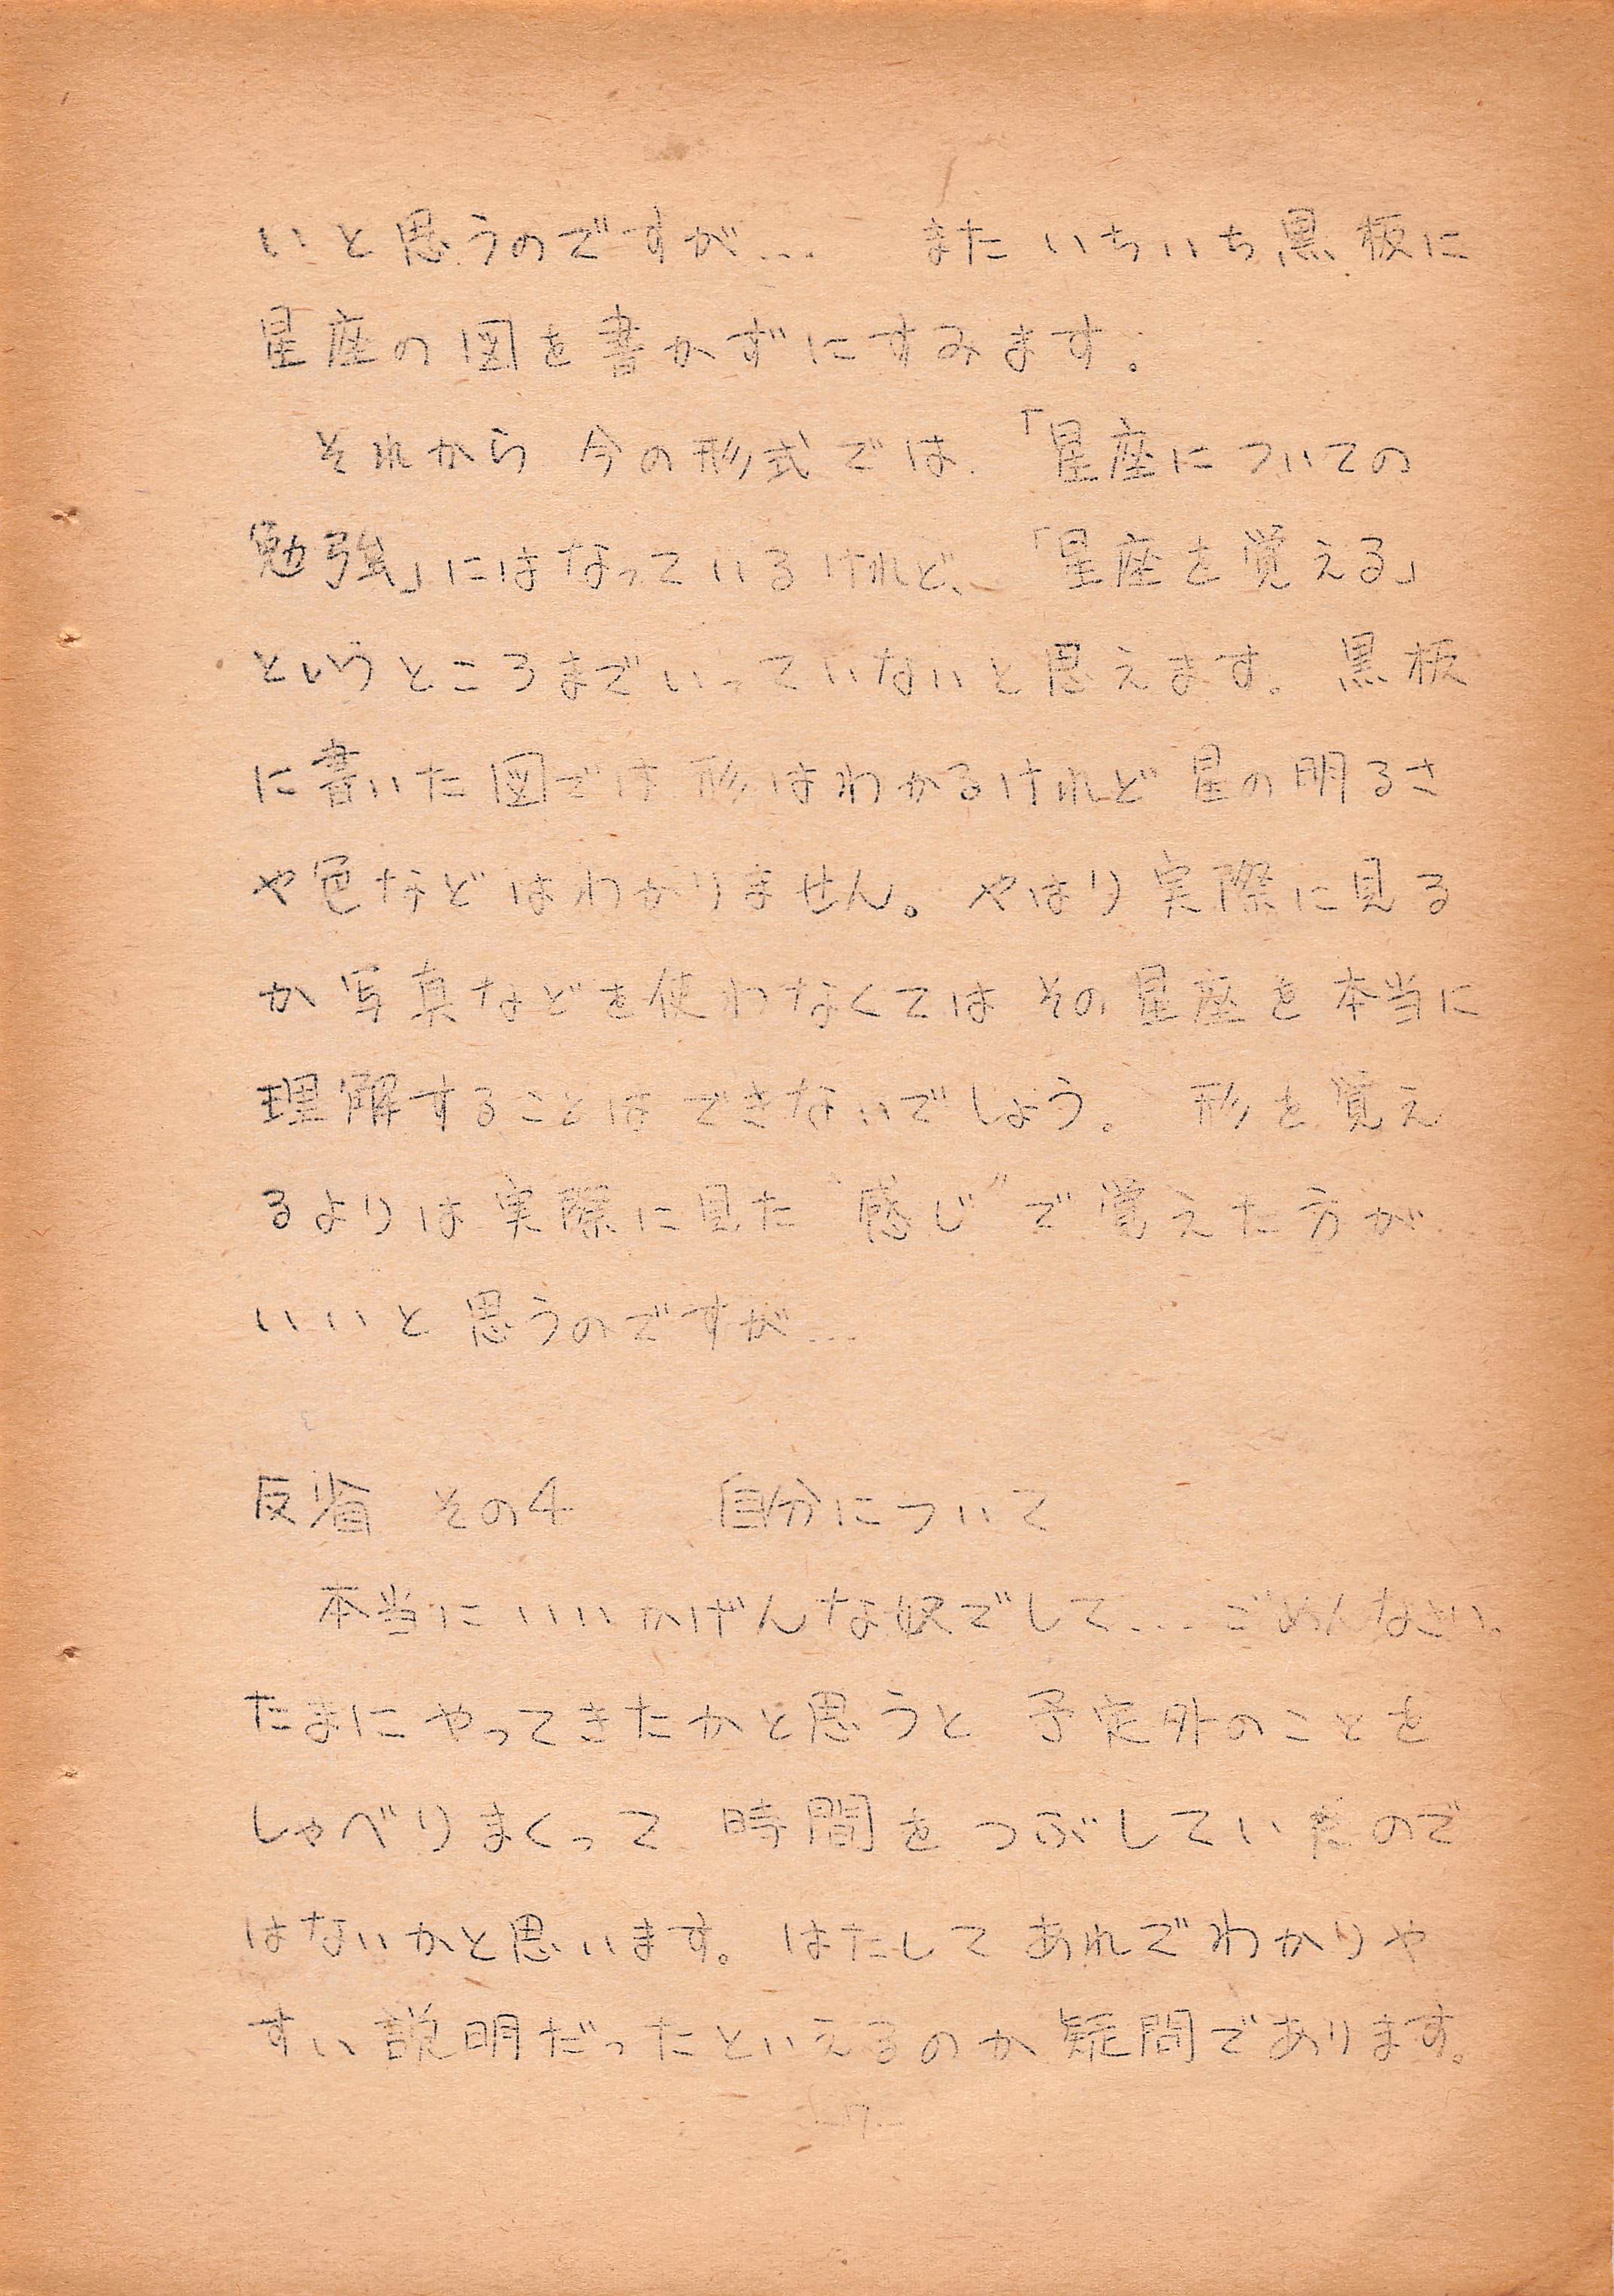 いと思うのですが… またいちいち黒板に
星座の図を書かずにすみます。
それから 今の形式では、「星座についての
勉強」にはなっているけれど、「星座を覚える」
というところまでいっていないと思えます。黒板
に書いた図では形はわかるけれど 星の明るさ
や色などはわかりません。やはり実際に見る
か写真などを使わなくては その星座を本当に
理解することはできないでしょう。 形を覚え
るよりは実際に見た“感じ”で覚えた方が
いいと思うのですが…
反省 その4 自分について
本当にいいかげんな奴でして…ごめんなさい。
たまにやってきたかと思うと 予定外のことを
しゃべりまくって 時間をつぶしていたので
はないかと思います。はたしてあれでわかりや
すい説明だったといえるのか疑問であります。
-7-